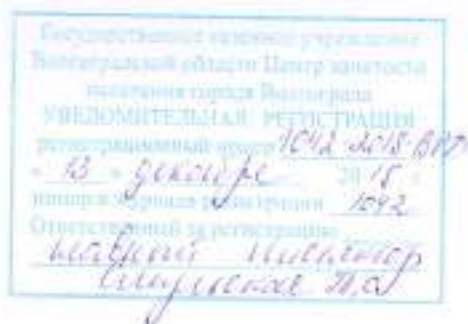 Государственное казенное учреждение
Волгоградской области Центр занятости
населения города Волгограда
УВЕДОМИТЕЛЬНАЯ РЕГИСТРАЦИЯ
регистрационный номер 1042-2018-ВРД
« 13 » декабре 20 18 г
номер в журнале регистрации 1042
Ответственный за регистрацию
главный